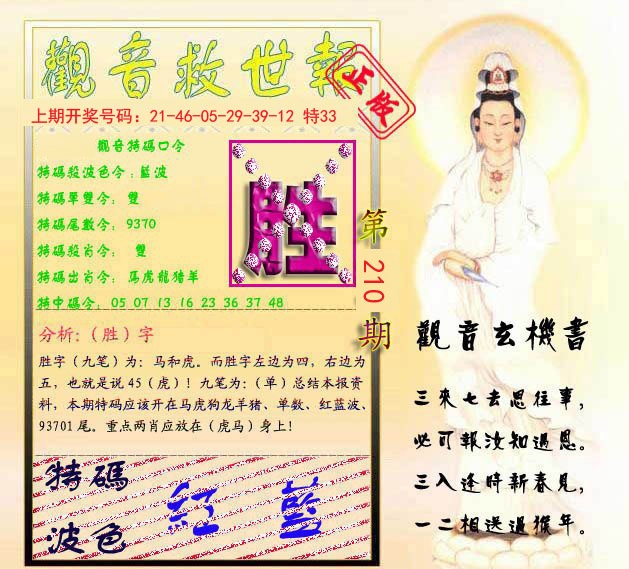 觀音救世報
正版
上期开奖号码：21-46-05-29-39-12 特33
觀音特碼口令
特碼殺波色令：藍波
特碼單雙令： 雙
特碼尾數令：9370
特碼殺肖令： 雙
特碼出肖令：馬虎龍猪羊
特中碼令：05 07 13 16 23 36 37 48
胜
第
210
期
分析:（胜）字
胜字（九笔）为：马和虎。而胜字左边为四，右边为
五，也就是说45（虎）！九笔为：（单）总结本报资
料，本期特码应该开在马虎狗龙羊猪、单数、红蓝波、
93701尾。重点两肖应放在（虎马）身上！
特碼
波色
紅 藍
觀音玄機書
三來七去思往事，
必可報汝知遇恩。
三入逢時新春見，
一二相送過猴年。